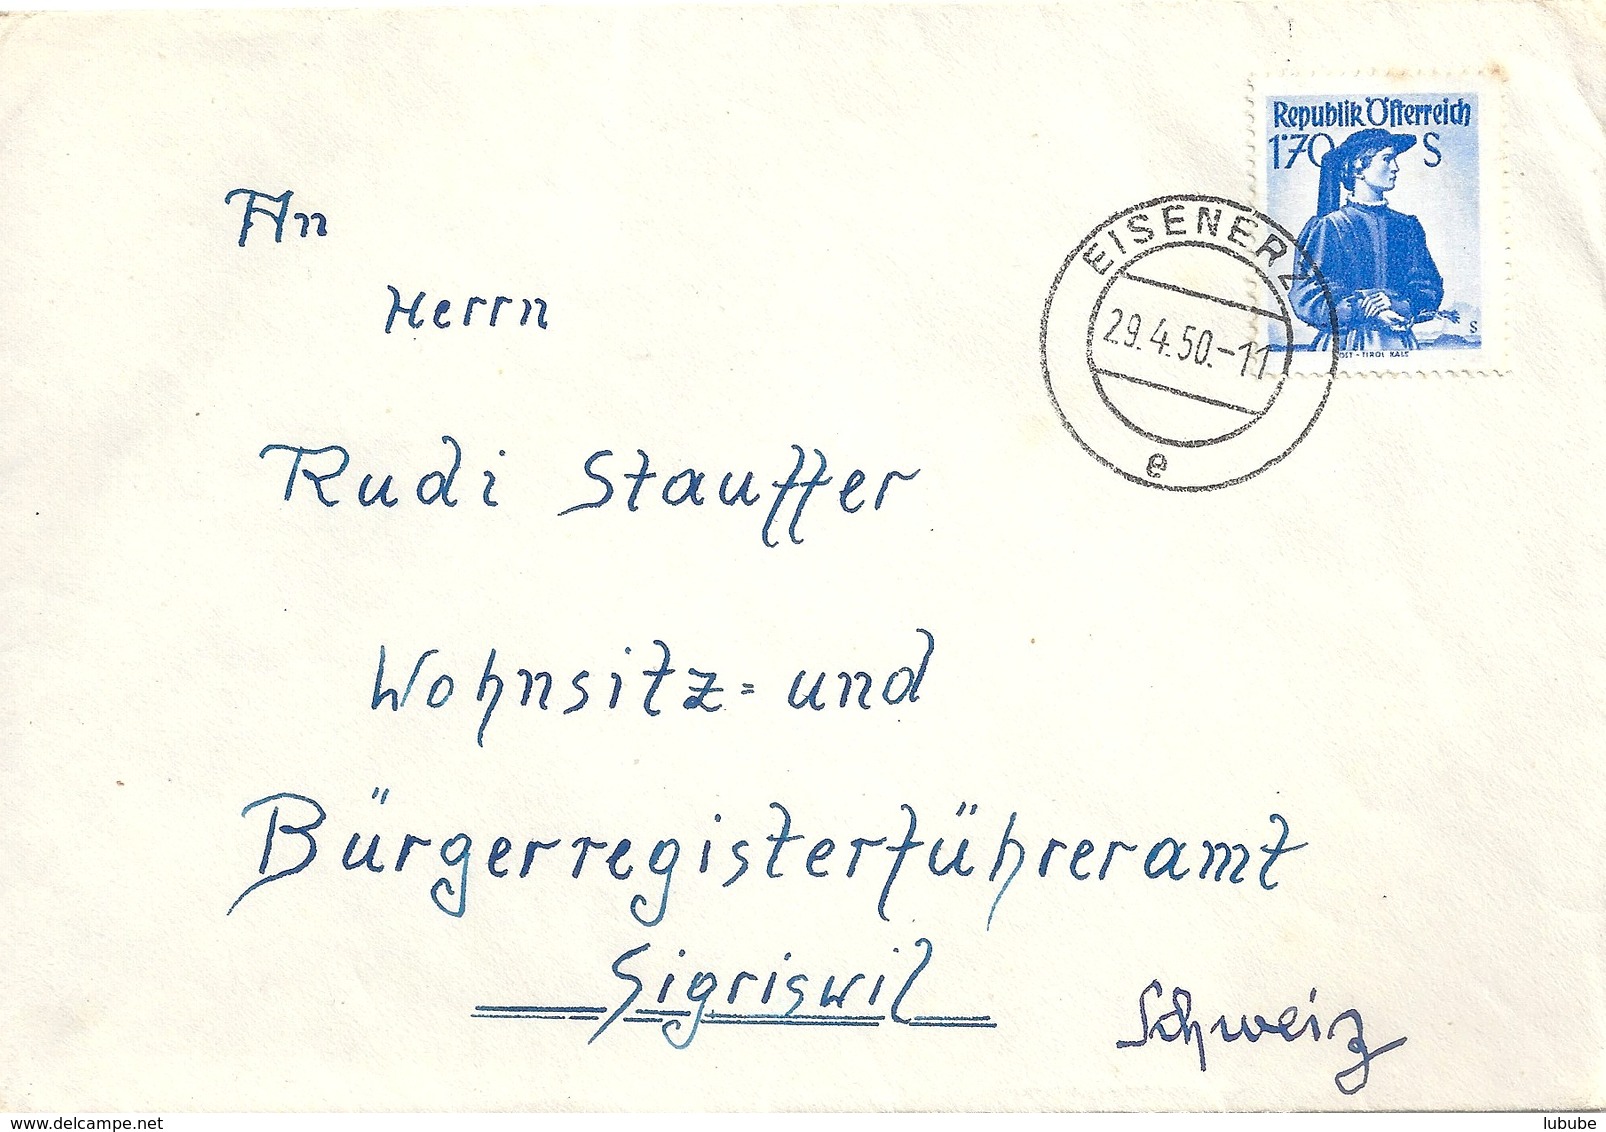 Republik Österreich
1·70 S
EISENERZ
29.4.50.-11
e
OST - TIROL KALS
S
An
Herrn
Rudi Stauffer
Wohnsitz= und
Bürgerregisterführeramt
Sigriswil
Schweiz
delcampe.net
lubube